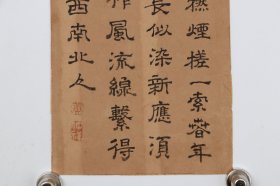 撚煙搓一索春年
長似染新應須
作風流線繫得
西南北人